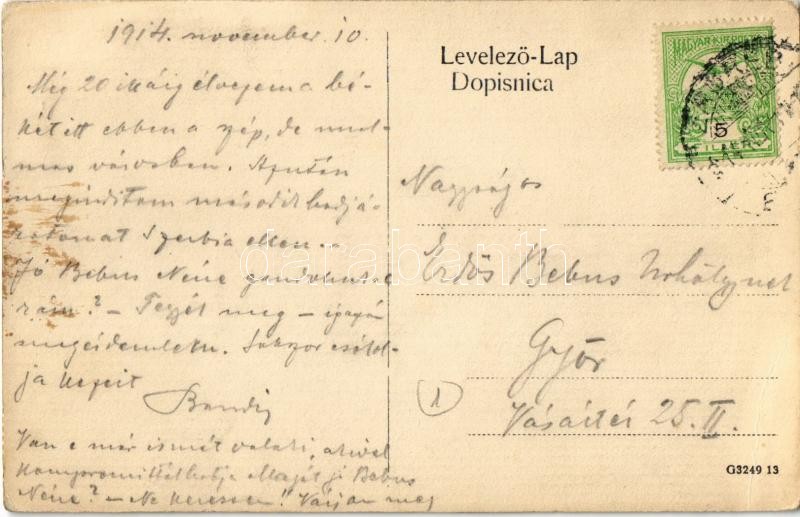 1914. november 10.
Még 20 ikáig élvezem a bé-
két itt ebben a szép, de unal-
mas városban. Azután
megindítom második hadjá-
ratomat Szerbia ellen.
Jó Bebus Néne gondolnak
rám? – Tegyék meg –
megérdemlem. Sokszor csókol-
ja kezeit
Bandi
Van e már ismét valaki, akivel
kompromittálhatja Magát jó Bebus
Néne? – Ne keressen! Várjon meg
Levelező-Lap
Dopisnica
MAGYAR KIR. POSTA
5
Nagyságos
Erdős Bebus Urhölgynek
Győr
Vásártér 25. II.
1
G3249 13
darabanth